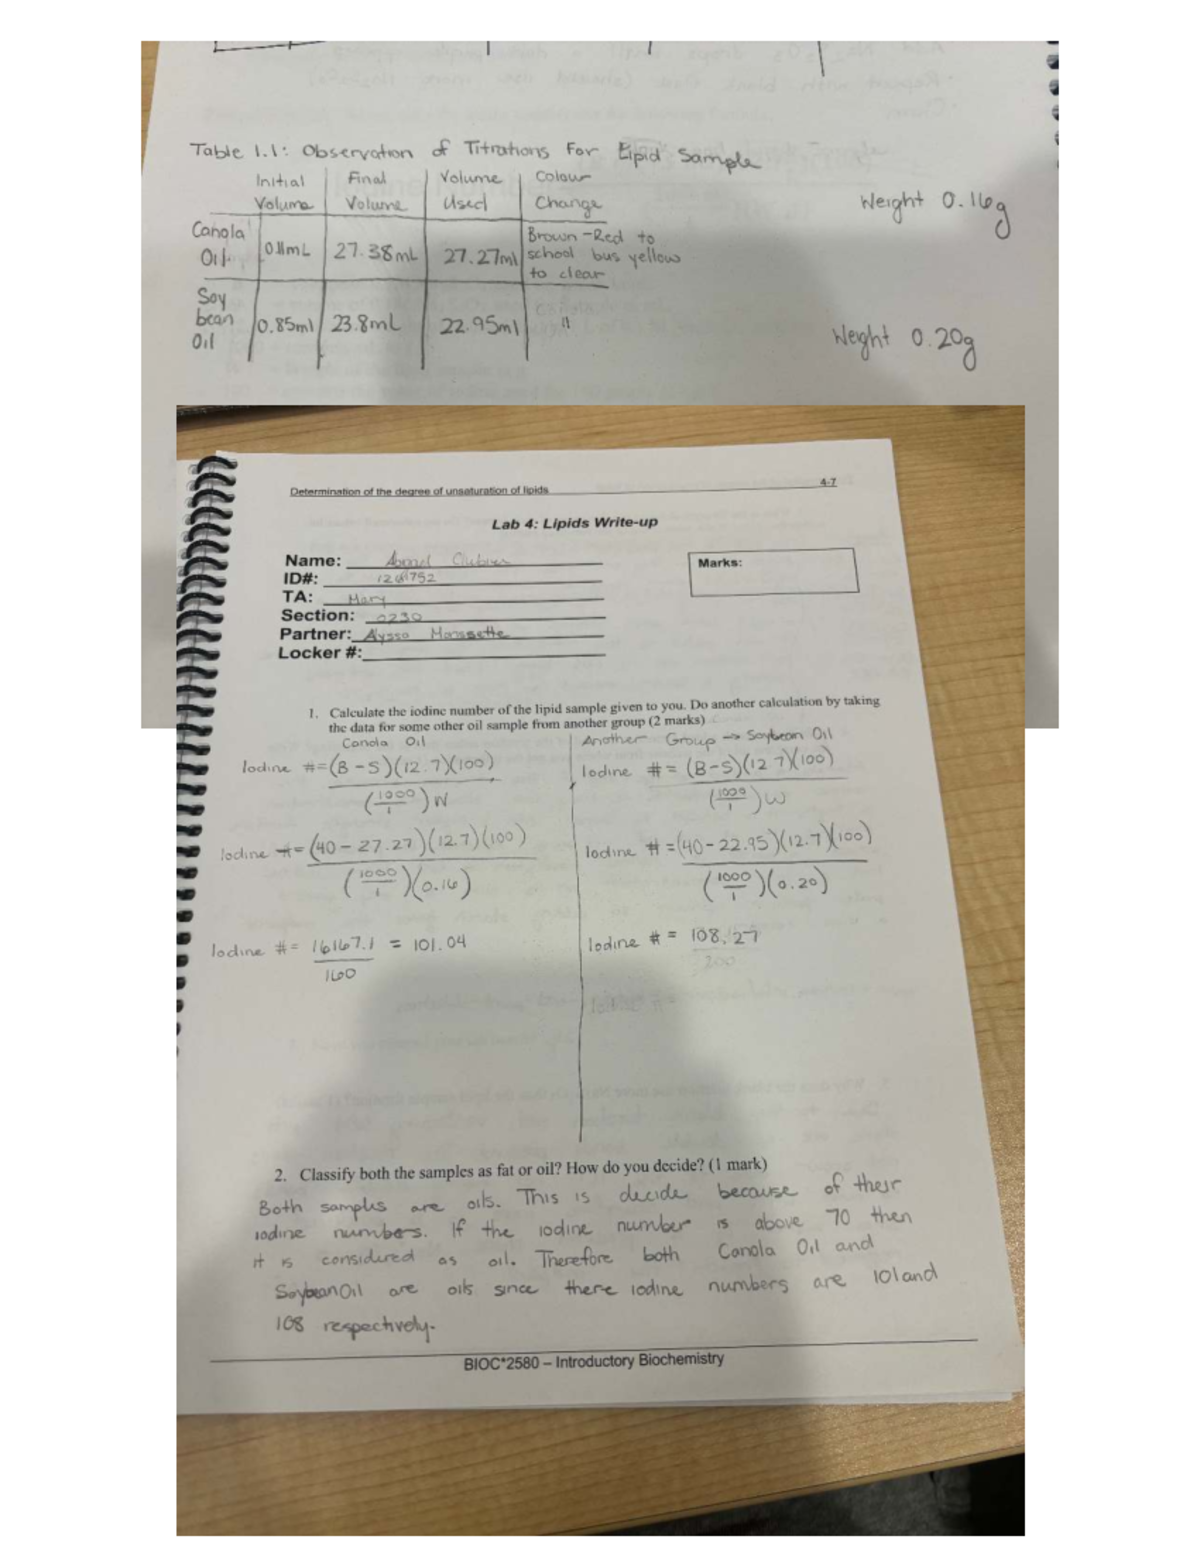 Table 1.1: Observation of Titrations For Lipid Sample
Initial Volume | Final Volume | Volume Used | Colour Change
Canola Oil | 0.11mL | 27.38mL | 27.27ml | Brown-Red to school bus yellow to clear
Weight 0.16g
Soy bean Oil | 0.85ml | 23.8mL | 22.95ml | "
Weight 0.20g
Determination of the degree of unsaturation of lipids 4-7
Lab 4: Lipids Write-up
Name:
Marks:
ID#:
TA: Mary
Section: 0230
Partner: Alyssa
Locker #:
1. Calculate the iodine number of the lipid sample given to you. Do another calculation by taking
the data for some other oil sample from another group (2 marks)
Canola Oil
Iodine #=(B-S)(12.7)(100)
(1000/1)W
Iodine #=(40-27.27)(12.7)(100)
(1000/1)(0.16)
Iodine #= 16167.1 = 101.04
160
Another Group → Soybean Oil
Iodine #= (B-S)(12.7)(100)
(1000/1)W
Iodine #=(40-22.95)(12.7)(100)
(1000/1)(0.20)
Iodine #= 108.27
200
2. Classify both the samples as fat or oil? How do you decide? (1 mark)
Both samples are oils. This is decide because of their
iodine numbers. If the iodine number is above 70 then
it is considered as oil. Therefore both Canola Oil and
Soybean Oil are oils since there iodine numbers are 101 and
108 respectively.
BIOC*2580 – Introductory Biochemistry